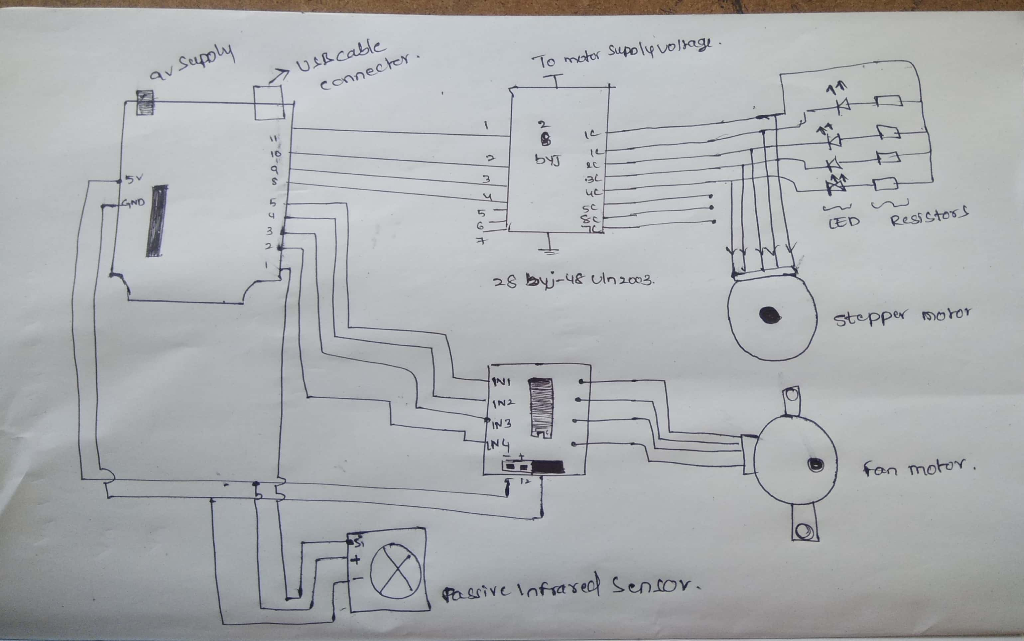 9v supply
USB cable
connector.
To motor supply voltage.
11
10
9
8
5V
GND
5
4
3
2
1
1
2
3
4
5
6
7
2
8
byj
1C
1C
2C
3C
4C
5C
6C
7C
LED
Resistors
28 byj-48 Uln2003.
stepper motor
IN1
IN2
IN3
IN4
- +
fan motor.
Si
+
-
Passive Infrared Sensor.